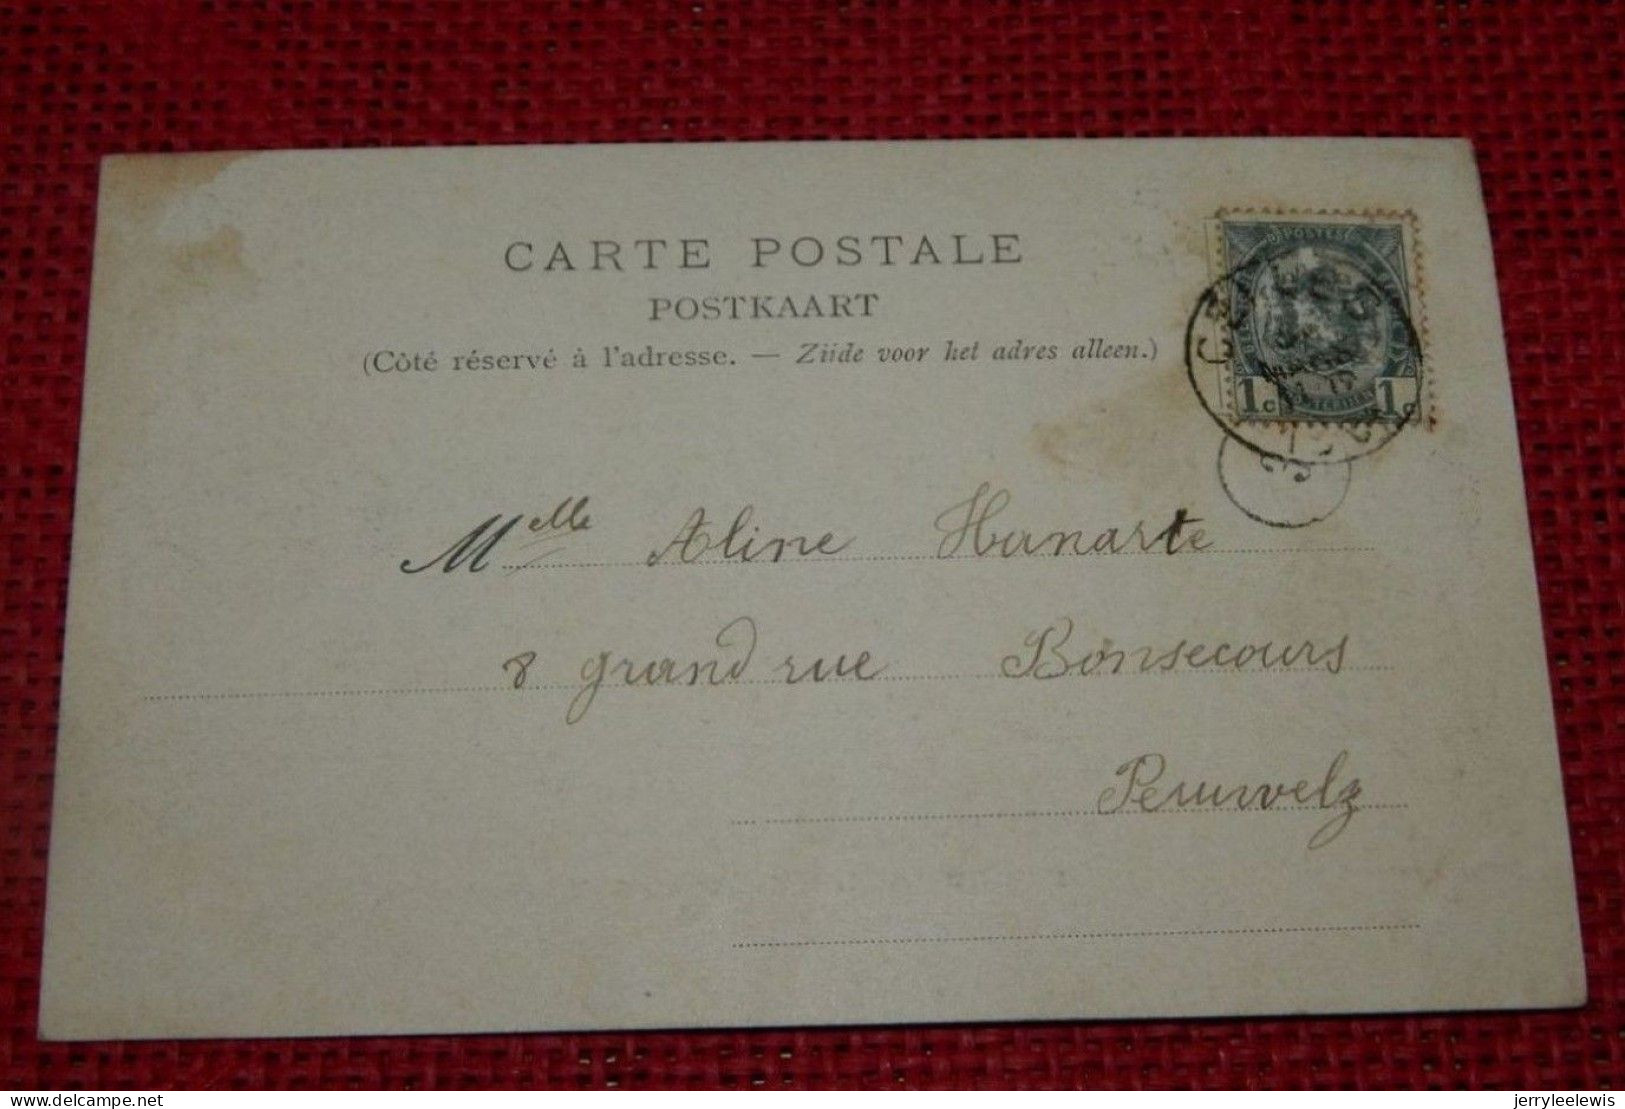 CARTE POSTALE
POSTKAART
(Côté réservé à l'adresse. — Zijde voor het adres alleen.)
POSTES
1c 1c
Melle Aline Hanarte
8 grand rue Bonsecours
Peruwelz
delcampe.net
jerryleelewis